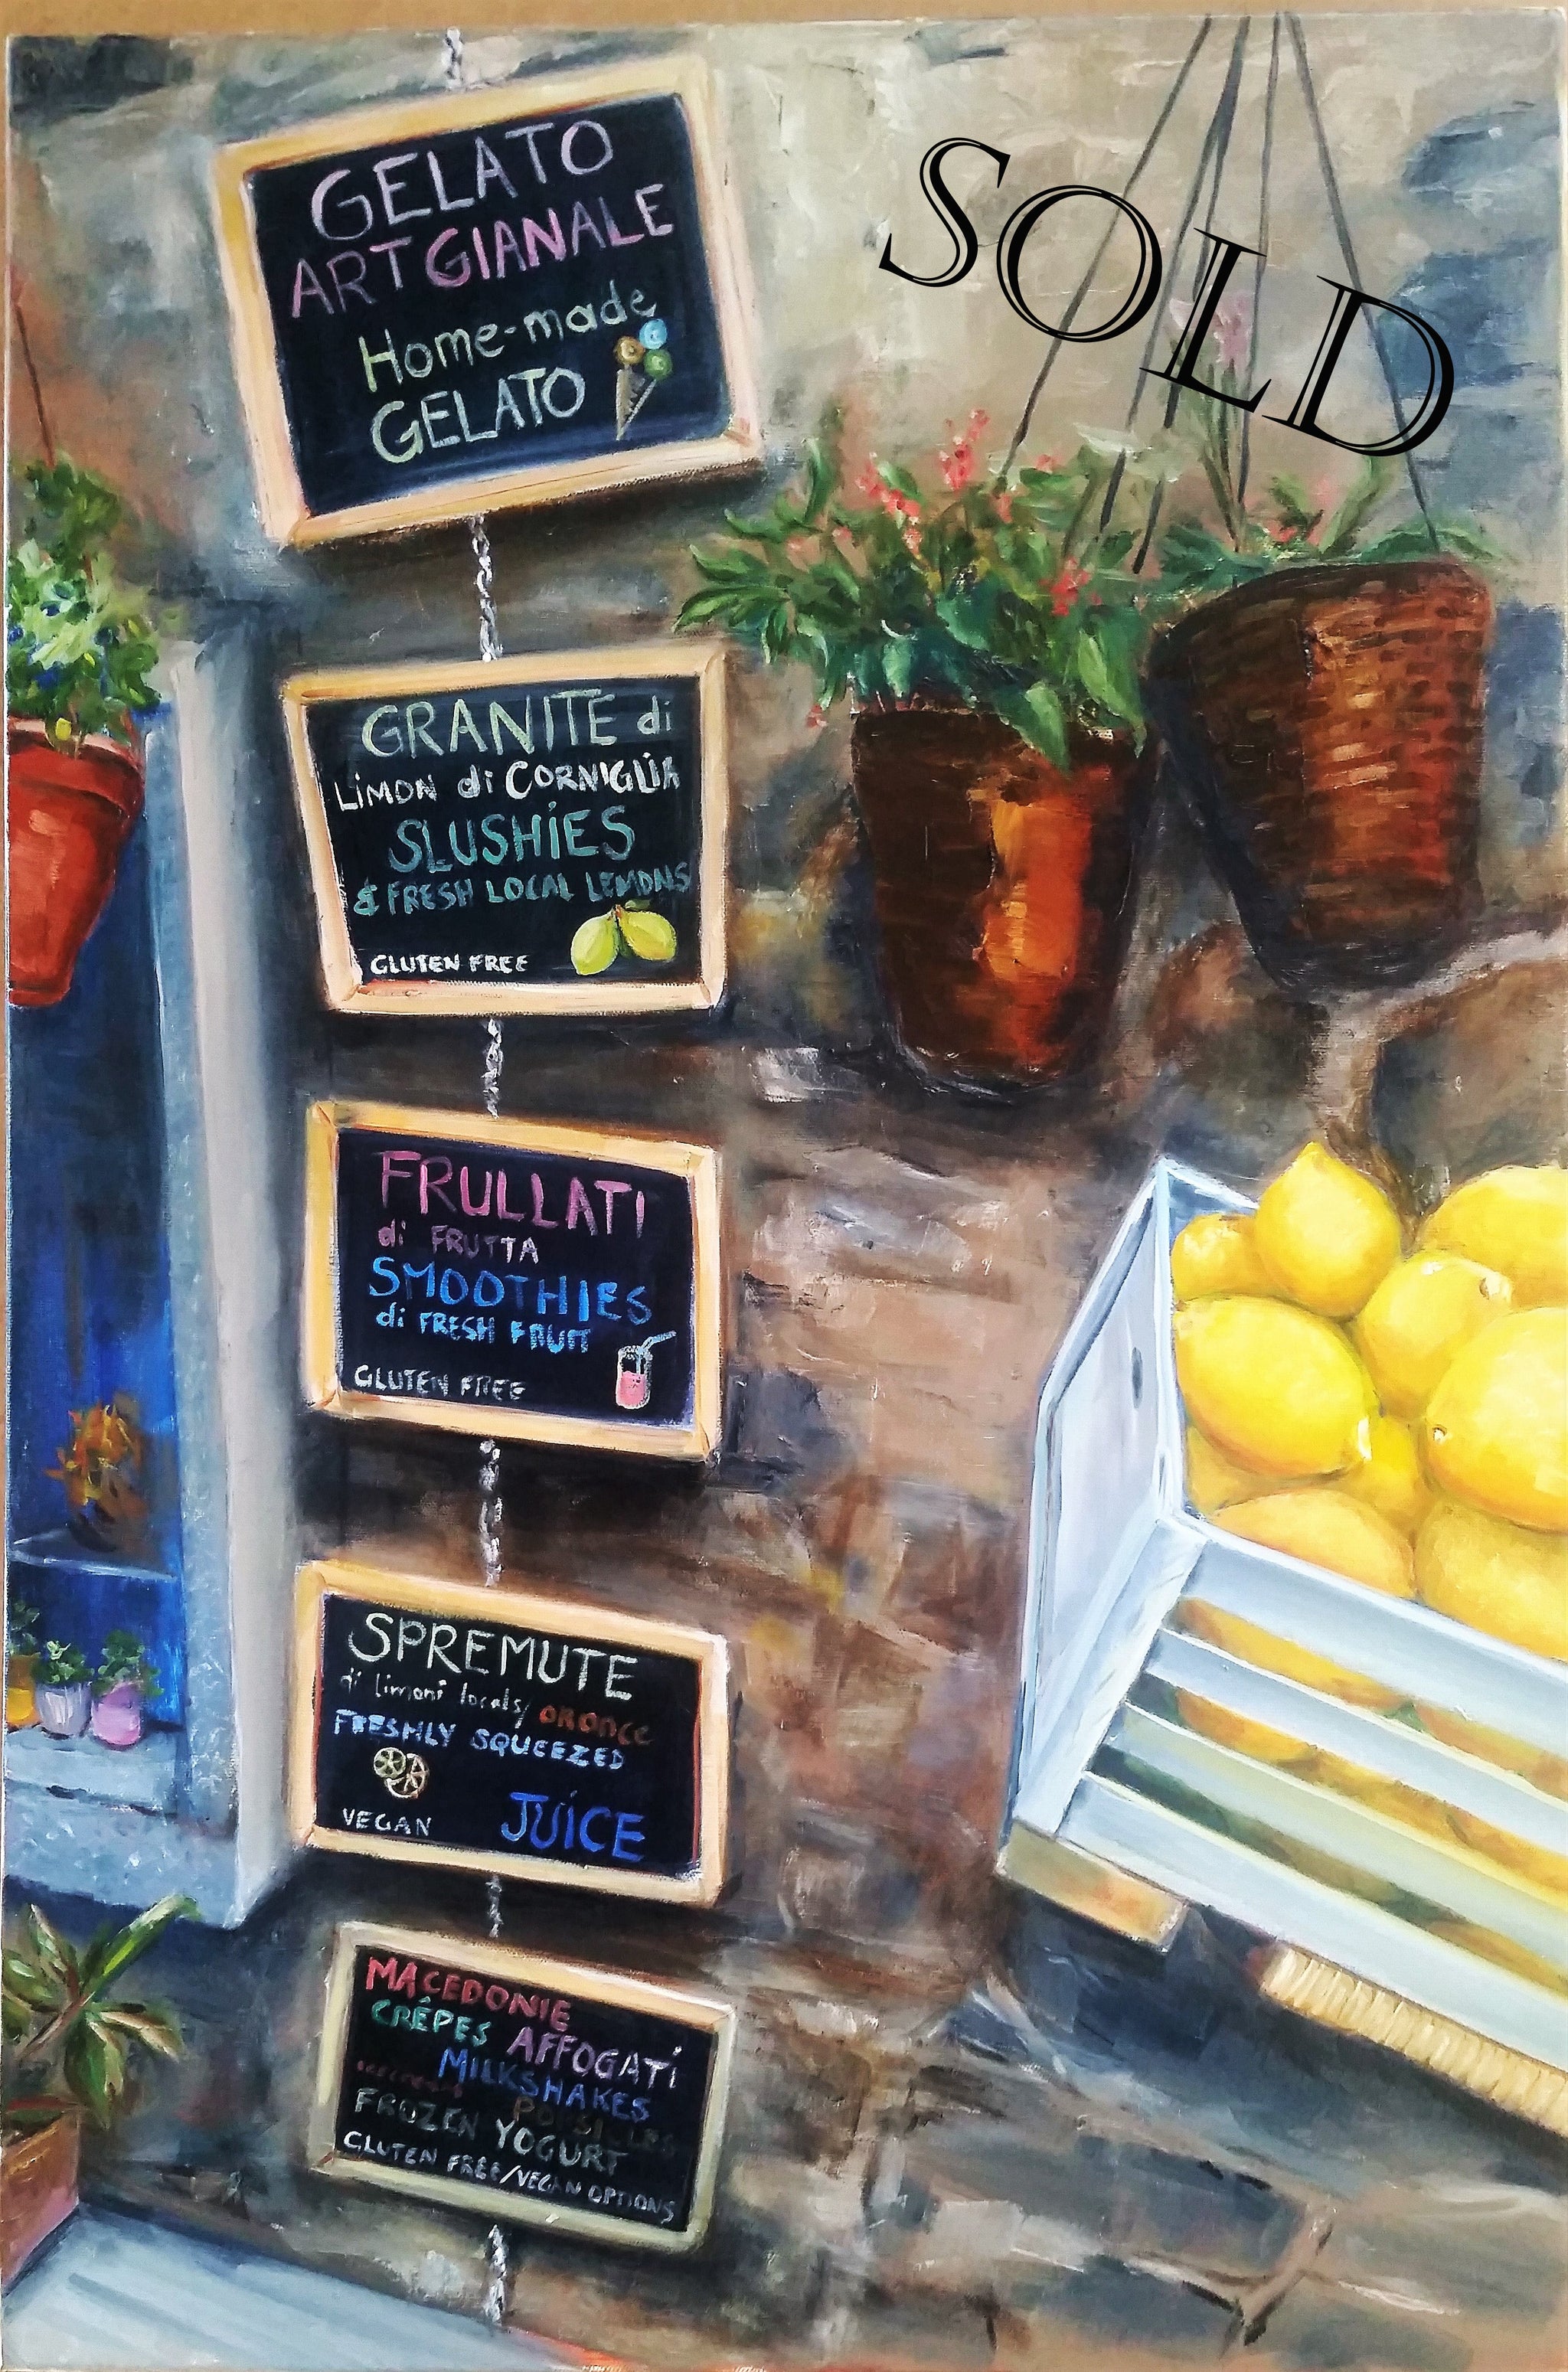 GELATO
ARTGIANALE
Home-made
GELATO
SOLD
GRANITE di
LIMON di CORNIGLIA
SLUSHIES
& FRESH LOCAL LEMONS
GLUTEN FREE
FRULLATI
di FRUTTA
SMOOTHIES
di FRESH FRUIT
GLUTEN FREE
SPREMUTE
di limoni locals/ ORANGE
FRESHLY SQUEEZED
VEGAN
JUICE
MACEDONIE
CRÊPES AFFOGATI
MILKSHAKES
FROZEN YOGURT
GLUTEN FREE/VEGAN OPTIONS